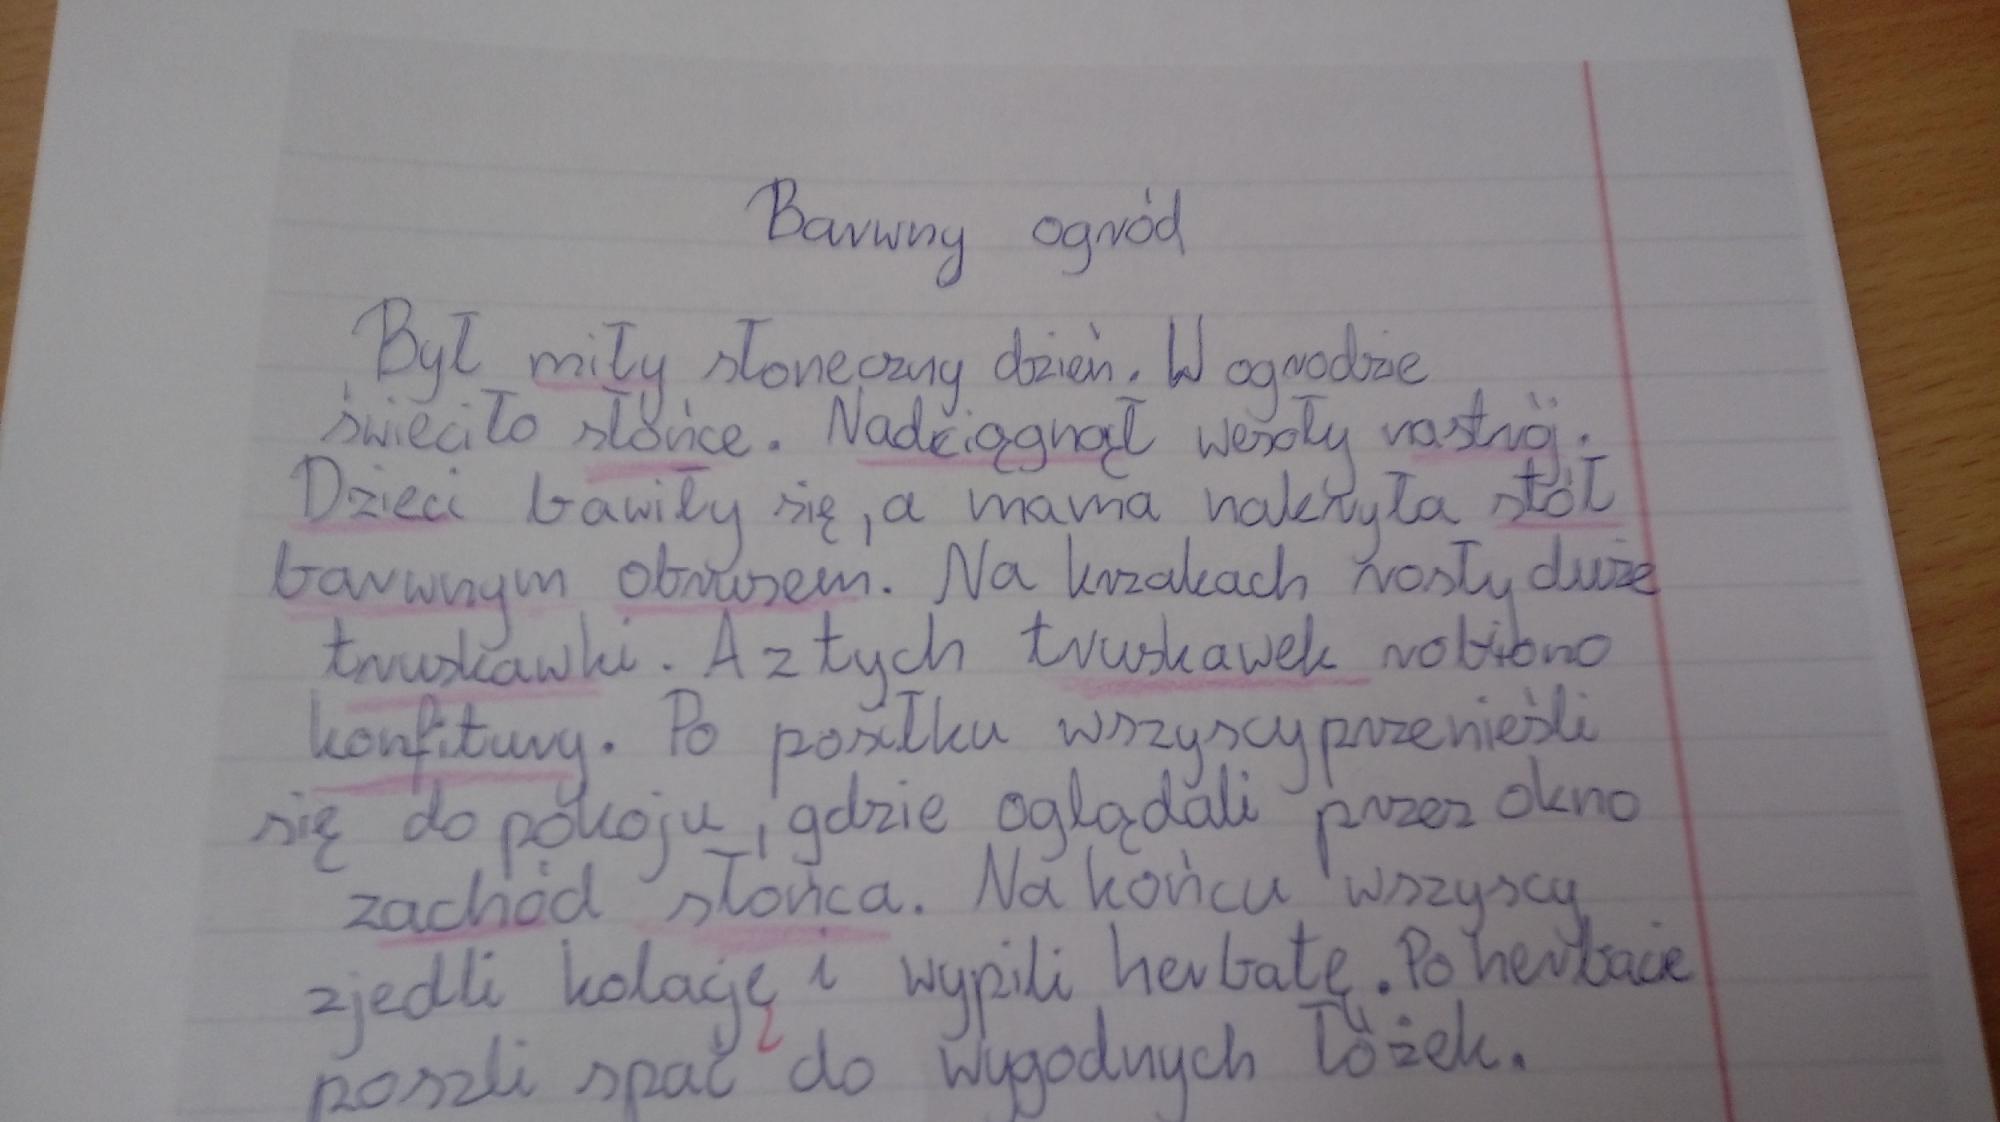 Barwny ogród
Był miły słoneczny dzień. W ogrodzie
świeciło słońce. Nadciągnął wesoły nastrój.
Dzieci bawiły się, a mama nakryła stół
barwnym obrusem. Na krzakach rosły duże
truskawki. A z tych truskawek robiono
konfitury. Po posiłku wszyscy przenieśli
się do pokoju, gdzie oglądali przez okno
zachód słońca. Na końcu wszyscy
zjedli kolację i wypili herbatę. Po herbacie
poszli spać do wygodnych łóżek.